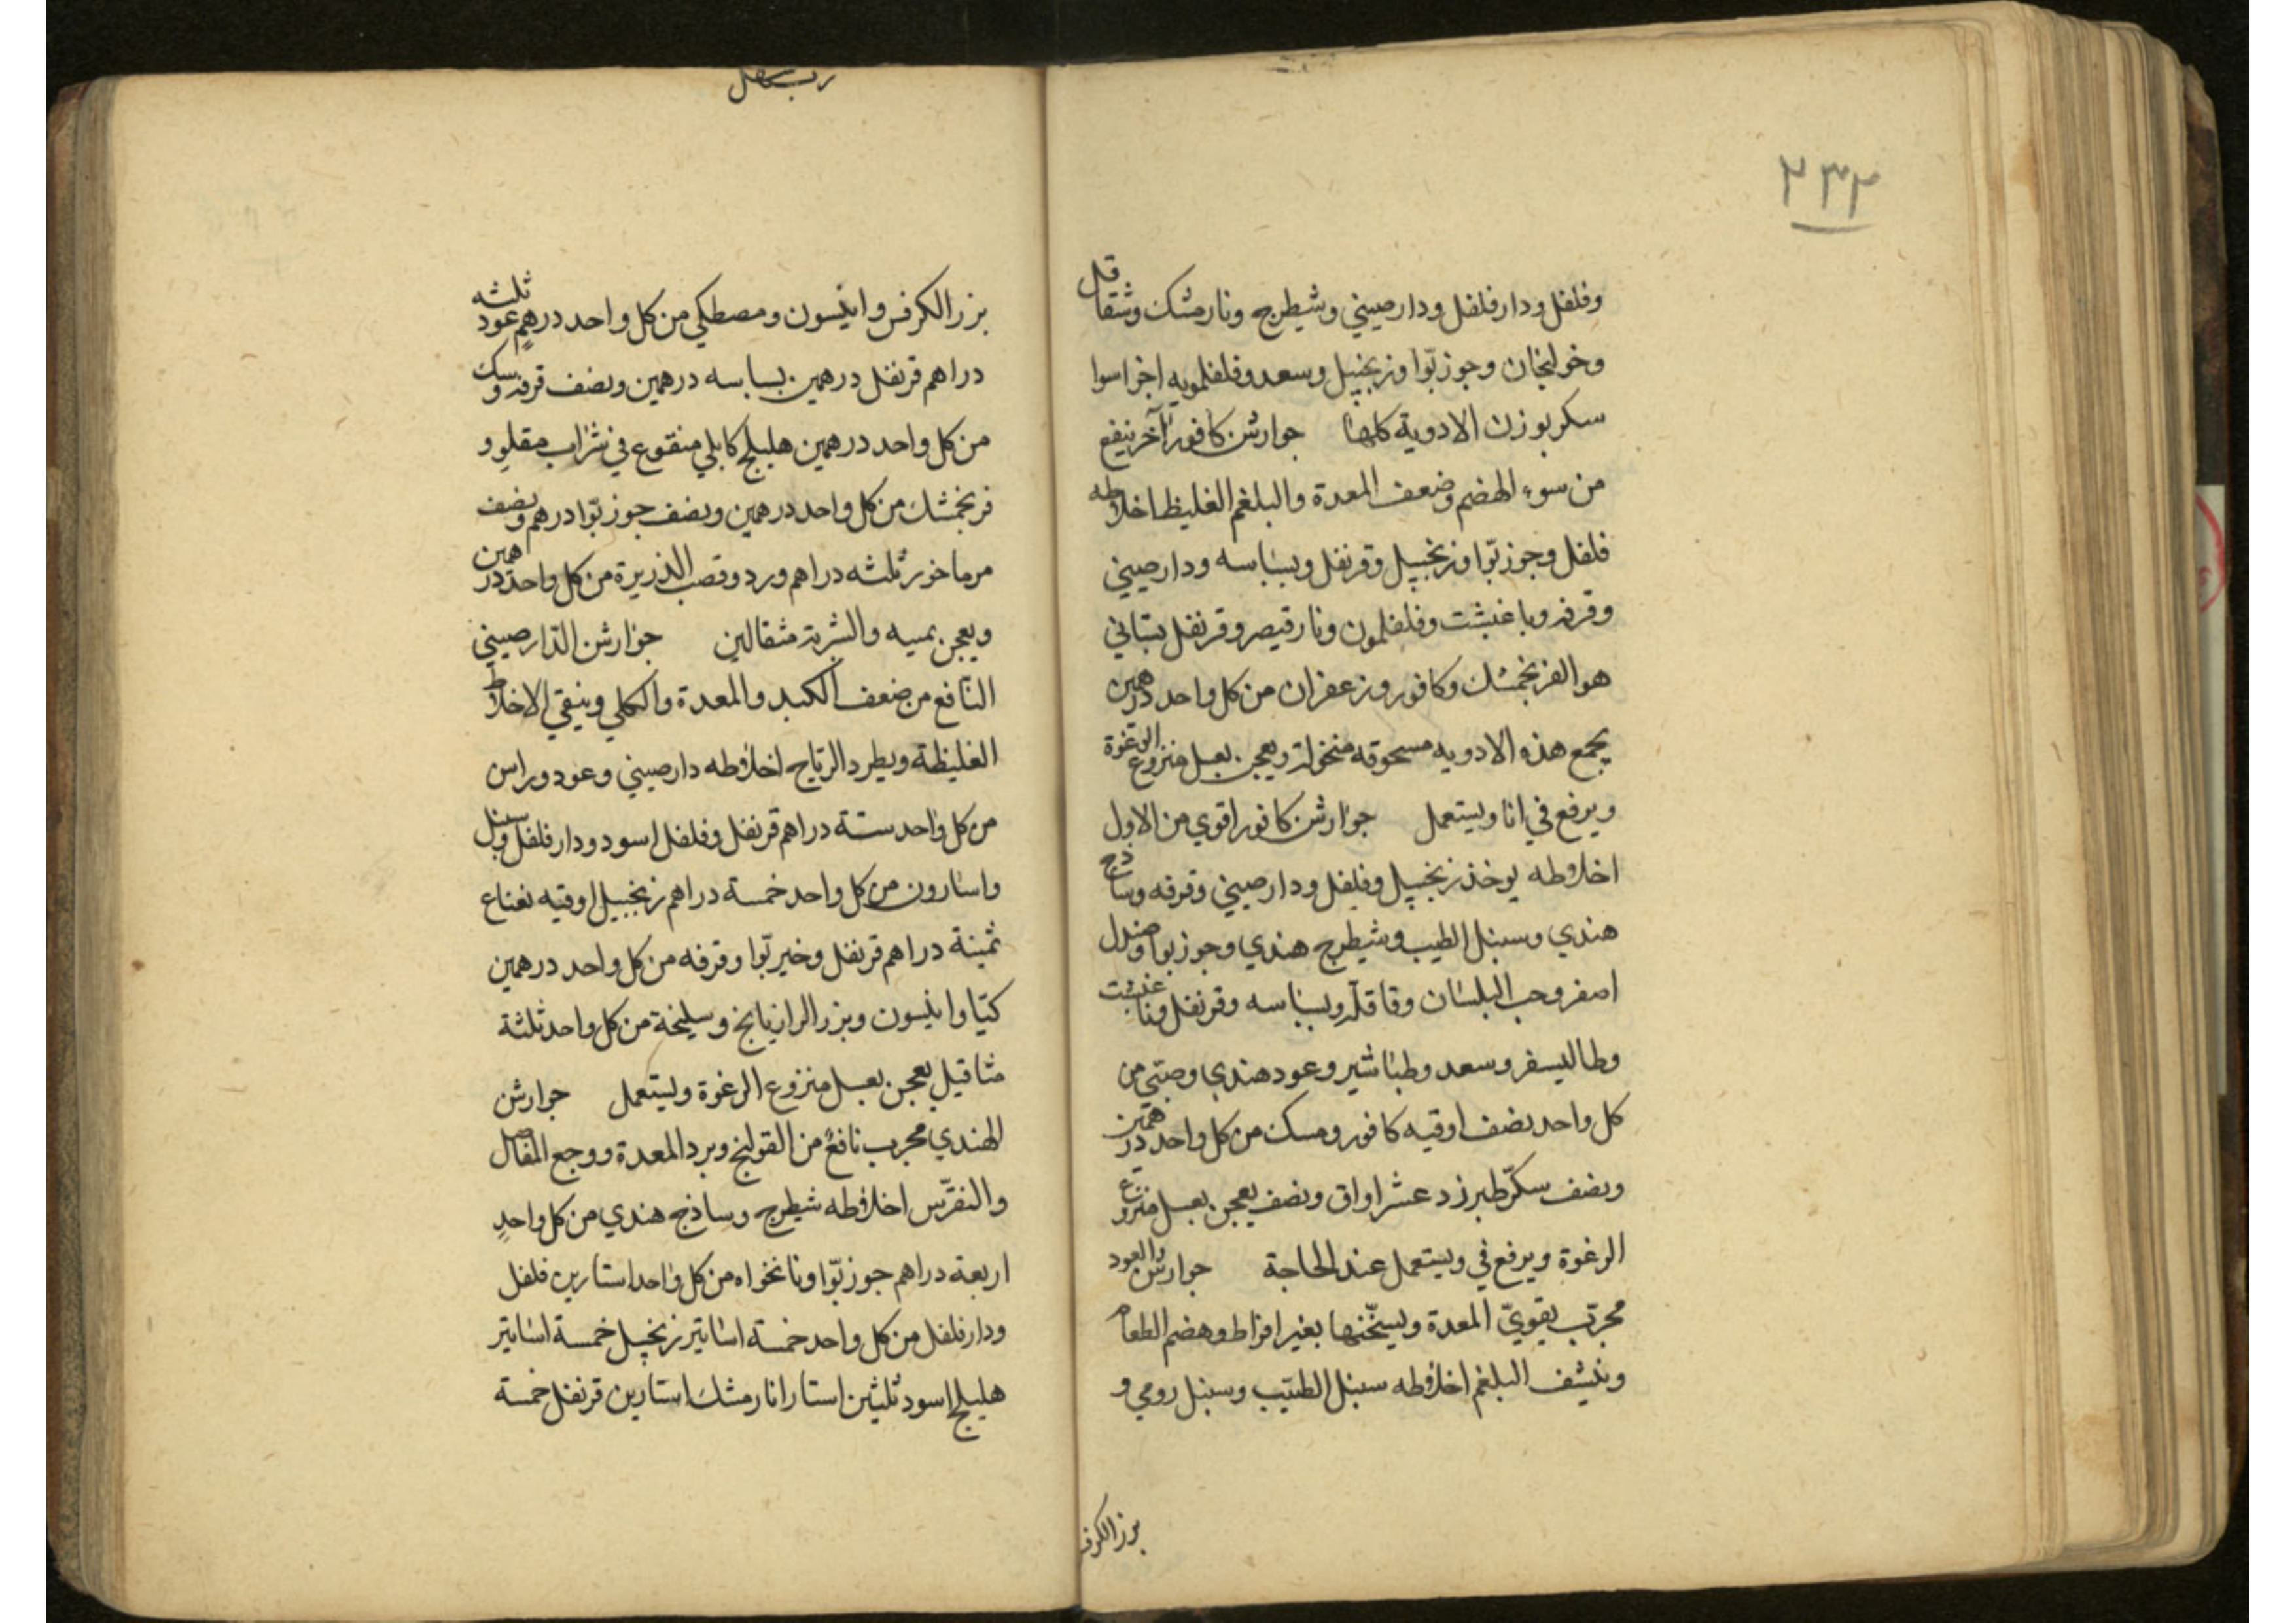 ٢٣٢
وفلفل ودارفلفل ودارصيني وشيطرج ونارمشك وشقاقل
وخولنجان وجوزبوّا وزنجبيل وسعد وفلفلمويه اخراسوا
سكر بوزن الادوية كلها جوارش كافور آخر ينفع
من سوء الهضم وضعف المعدة والبلغم الغليظ اخلاطه
فلفل وجوزبوّا وزنجبيل وقرنفل وبسباسه ودارصيني
وقرفه وباغبشت وفلفلمون ونارقيصر وقرنفل بستاني
هو الفرنجمشك وكافور وزعفران من كل واحد درهمين
يجمع هذه الادويه مسحوقه منخوله ويعجن بعسل منزوع الرغوة
ويرفع في انا ويستعمل جوارش كافور اقوي من الاول
اخلاطه يوخذ زنجبيل وفلفل ودارصيني وقرفه وساذج
هندي وسنبل الطيب وشيطرج هندي وجوزبوا وصندل
اصفر وحب البلسان وقاقله وبسباسه وقرنفل
وطاليسفر وسعد وطباشير وعود هندي وصبّي من
كل واحد نصف اوقيه كافور ومسك من كل واحد درهمين
ونصف سكّر طبرزد عشر اواق ونصف يعجن بعسل منزوع
الرغوة ويرفع في ويستعمل عند الحاجة جوارش والعود
مجرّب يقويّ المعدة ويسخّنها بغير افراط وهضم الطعام
وينشف البلغم اخلاطه سنبل الطيّب وسنبل رومي و
بزر الكرفس
بزر الكرفس وانيسون ومصطكي من كل واحد درهم عود ثلثه
دراهم قرنفل درهمين بسباسه درهمين ونصف قرفه وسك
من كل واحد درهمين هليلج كابلي منقوع في شراب مقلو و
فرنجمشك من كل واحد درهمين ونصف جوزبوّا درهم ونصف
مرماخور ثلثه دراهم ورد وقصب الذريرة من كل واحد درهمين
ويعجن بميبه والشربة مثقالين جوارش الدّارصيني
النافع من ضعف الكبد والمعدة والكلي وينقي الاخلاط
الغليظة ويطرد الرّياح اخلاطه دارصيني وعود وراسن
من كل واحد ستة دراهم قرنفل وفلفل اسود ودارفلفل وسنبل
واسارون من كل واحد خمسة دراهم زنجبيل اوقيه نعناع
ثمينة دراهم قرنفل وخيربّوا وقرفه من كل واحد درهمين
كتيّا وانيسون وبزر الرازيانج وسليخة من كل واحد ثلثة
مثاقيل يعجن بعسل منزوع الرغوة ويستعمل جوارش
الهندي مجرب نافع من القولنج وبرد المعدة ووجع المفاصل
والنقرّس اخلاطه شيطرج وساذج هندي من كل واحد
اربعة دراهم جوزبوّا ونانخواه من كل واحد استارين فلفل
ودارفلفل من كل واحد خمسة اساتير زنجبيل خمسة اساتير
هليلج اسود ثلثين استارا نارمشك استارين قرنفل خمسة